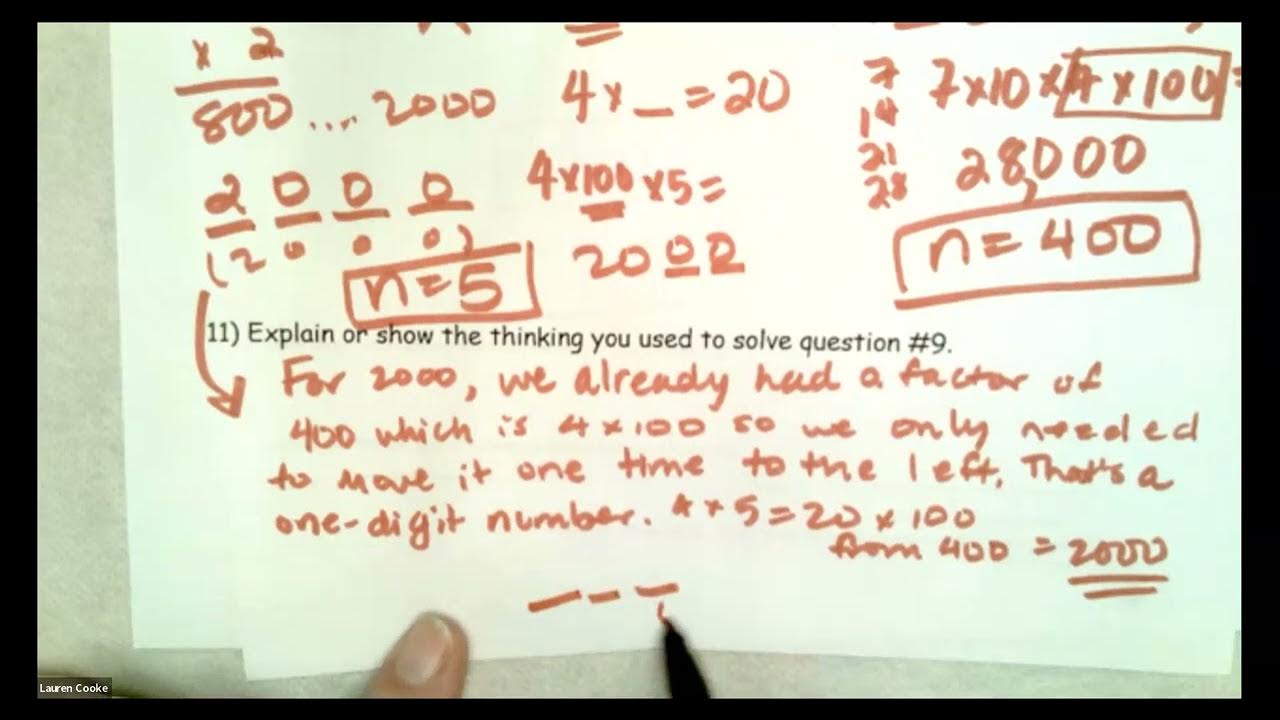 x 2
800 .... 2000
4 x _ = 20
7
14
21
28
7x10 x 4 x 100 =
28,000
n = 400
2 0 0 0
4 x 100 x 5 =
2000
n = 5
11) Explain or show the thinking you used to solve question #9.
For 2000, we already had a factor of
400 which is 4 x 100 so we only needed
to move it one time to the left. That's a
one-digit number. 4 x 5 = 20 x 100
from 400 = 2000
Lauren Cooke